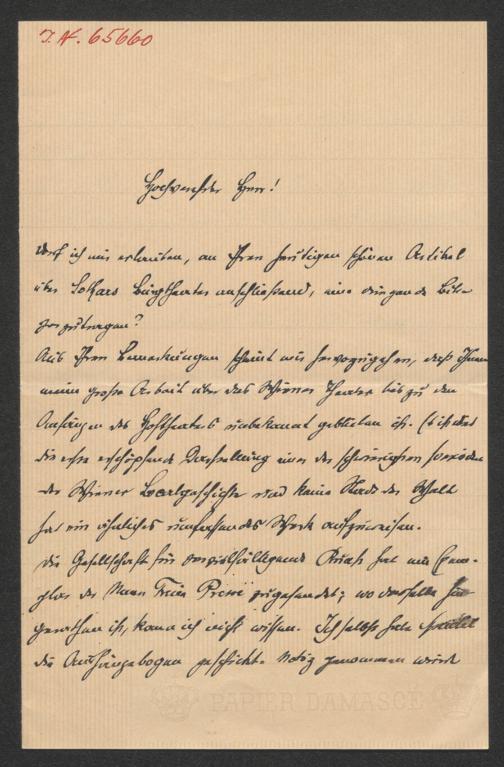 J. N. 65660
Hochverehrter Herr!
Darf ich mir erlauben, an Ihren heutigen schönen Artikel
über Lothars Burgtheater anschließend, eine dringende Bitte
vorzutragen?
Aus Ihren Bemerkungen scheint mir hervorzugehen, daß Ihnen
meine große Arbeit über das Wiener Theater bis zu den
Anfängen des Hoftheaters unbekannt geblieben ist. Es ist das
die erste erschöpfende Darstellung einer der schwierigsten Perioden
der Wiener Localgeschichte und keine Stadt der Welt
hat ein ähnliches umfassendes Werk aufzuweisen.
Die Gesellschaft für vervielfältigende Kunst hat ein Exem-
plar der Neuen Freien Presse zugesendet; wo dasselbe hin
gerathen ist, kann ich nicht wissen. Ich selbst habe
die Aushängebogen geschickt. Notiz genommen wurde
PAPIER DAMASCÉ